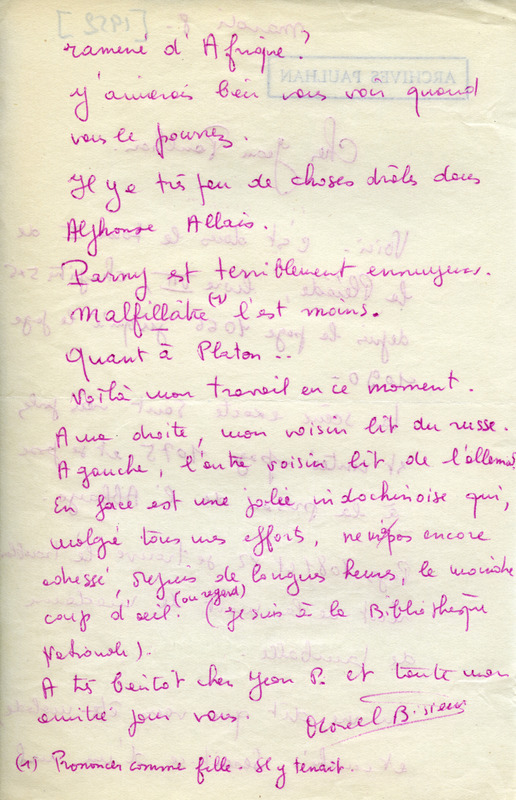 ramené d'Afrique?
J'aimerais bien vous voir quand
vous le pourrez.
Il y a très peu de choses drôles dans
Alphonse Allais.
Parny est terriblement ennuyeux.
Malfillâtre (1) l'est moins.
Quant à Platon...
Voilà mon travail en ce moment.
A ma droite, mon voisin lit du russe.
A gauche, l'autre voisin lit de l'allemand
En face est une jolie indochinoise qui,
malgré tous mes efforts, ne m'a pas encore
adressé, depuis de longues heures, le moindre
coup d'oeil. (ou regard) (Je suis à la Bibliothèque
Nationale).
A très bientôt cher Jean P. et toute mon
amitié pour vous.
Marcel Bisiaux
(1) Prononcer comme fille. Il y tenait.
ARCHIVES PAULHAN
[1952]